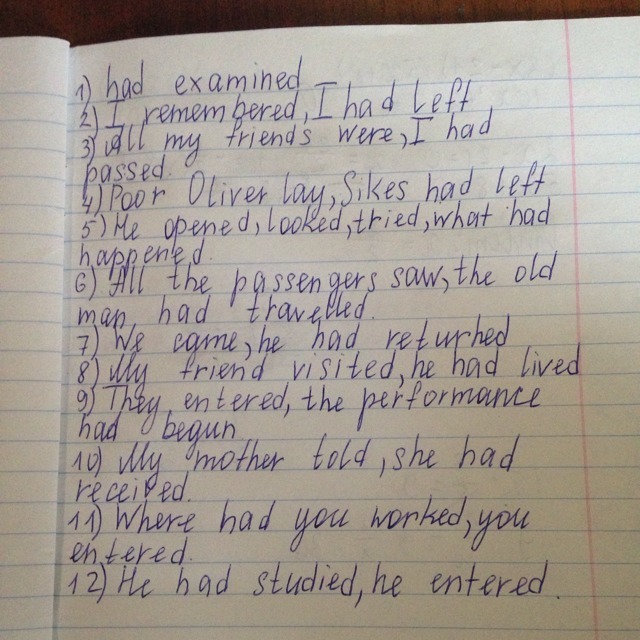 1) had examined
2) I remembered, I had left
3) All my friends were, I had
passed.
4) Poor Oliver lay, Sikes had left
5) He opened, looked, tried, what had
happened.
6) All the passengers saw, the old
man had travelled.
7) We came, he had returned
8) My friend visited, he had lived
9) They entered, the performance
had begun
10) My mother told, she had
received.
11) Where had you worked, you
entered.
12) He had studied, he entered.